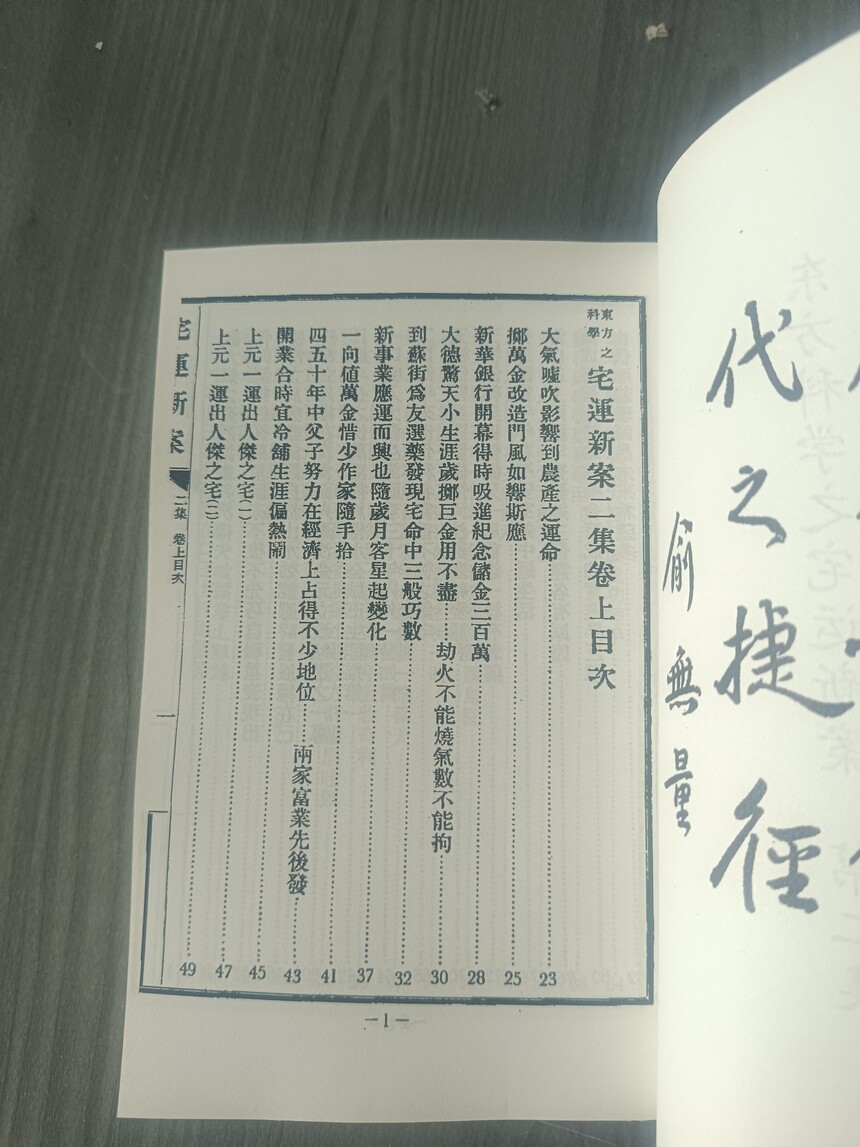 代之捷徑
俞無量
東方之科學 宅運新案二集卷上目次
大氣噓吹影響到農產之運命…………23
擲萬金改造門風如響斯應…………25
新華銀行開幕得時吸進紀念儲金三百萬…………28
大德驚天小生涯歲擲巨金用不盡……劫火不能燒氣數不能拘…………30
到蘇街爲友選藥發現宅命中三般巧數…………32
新事業應運而興也隨歲月客星起變化…………37
一向値萬金惜少作家隨手拾…………41
四五十年中父子努力在經濟上占得不少地位……兩家富業先後發……43
開業合時宜冷舖生涯偏熱鬧…………45
上元一運出人傑之宅(一)…………47
上元一運出人傑之宅(二)…………49
宅運新案 二集 卷上目次 一
—1—